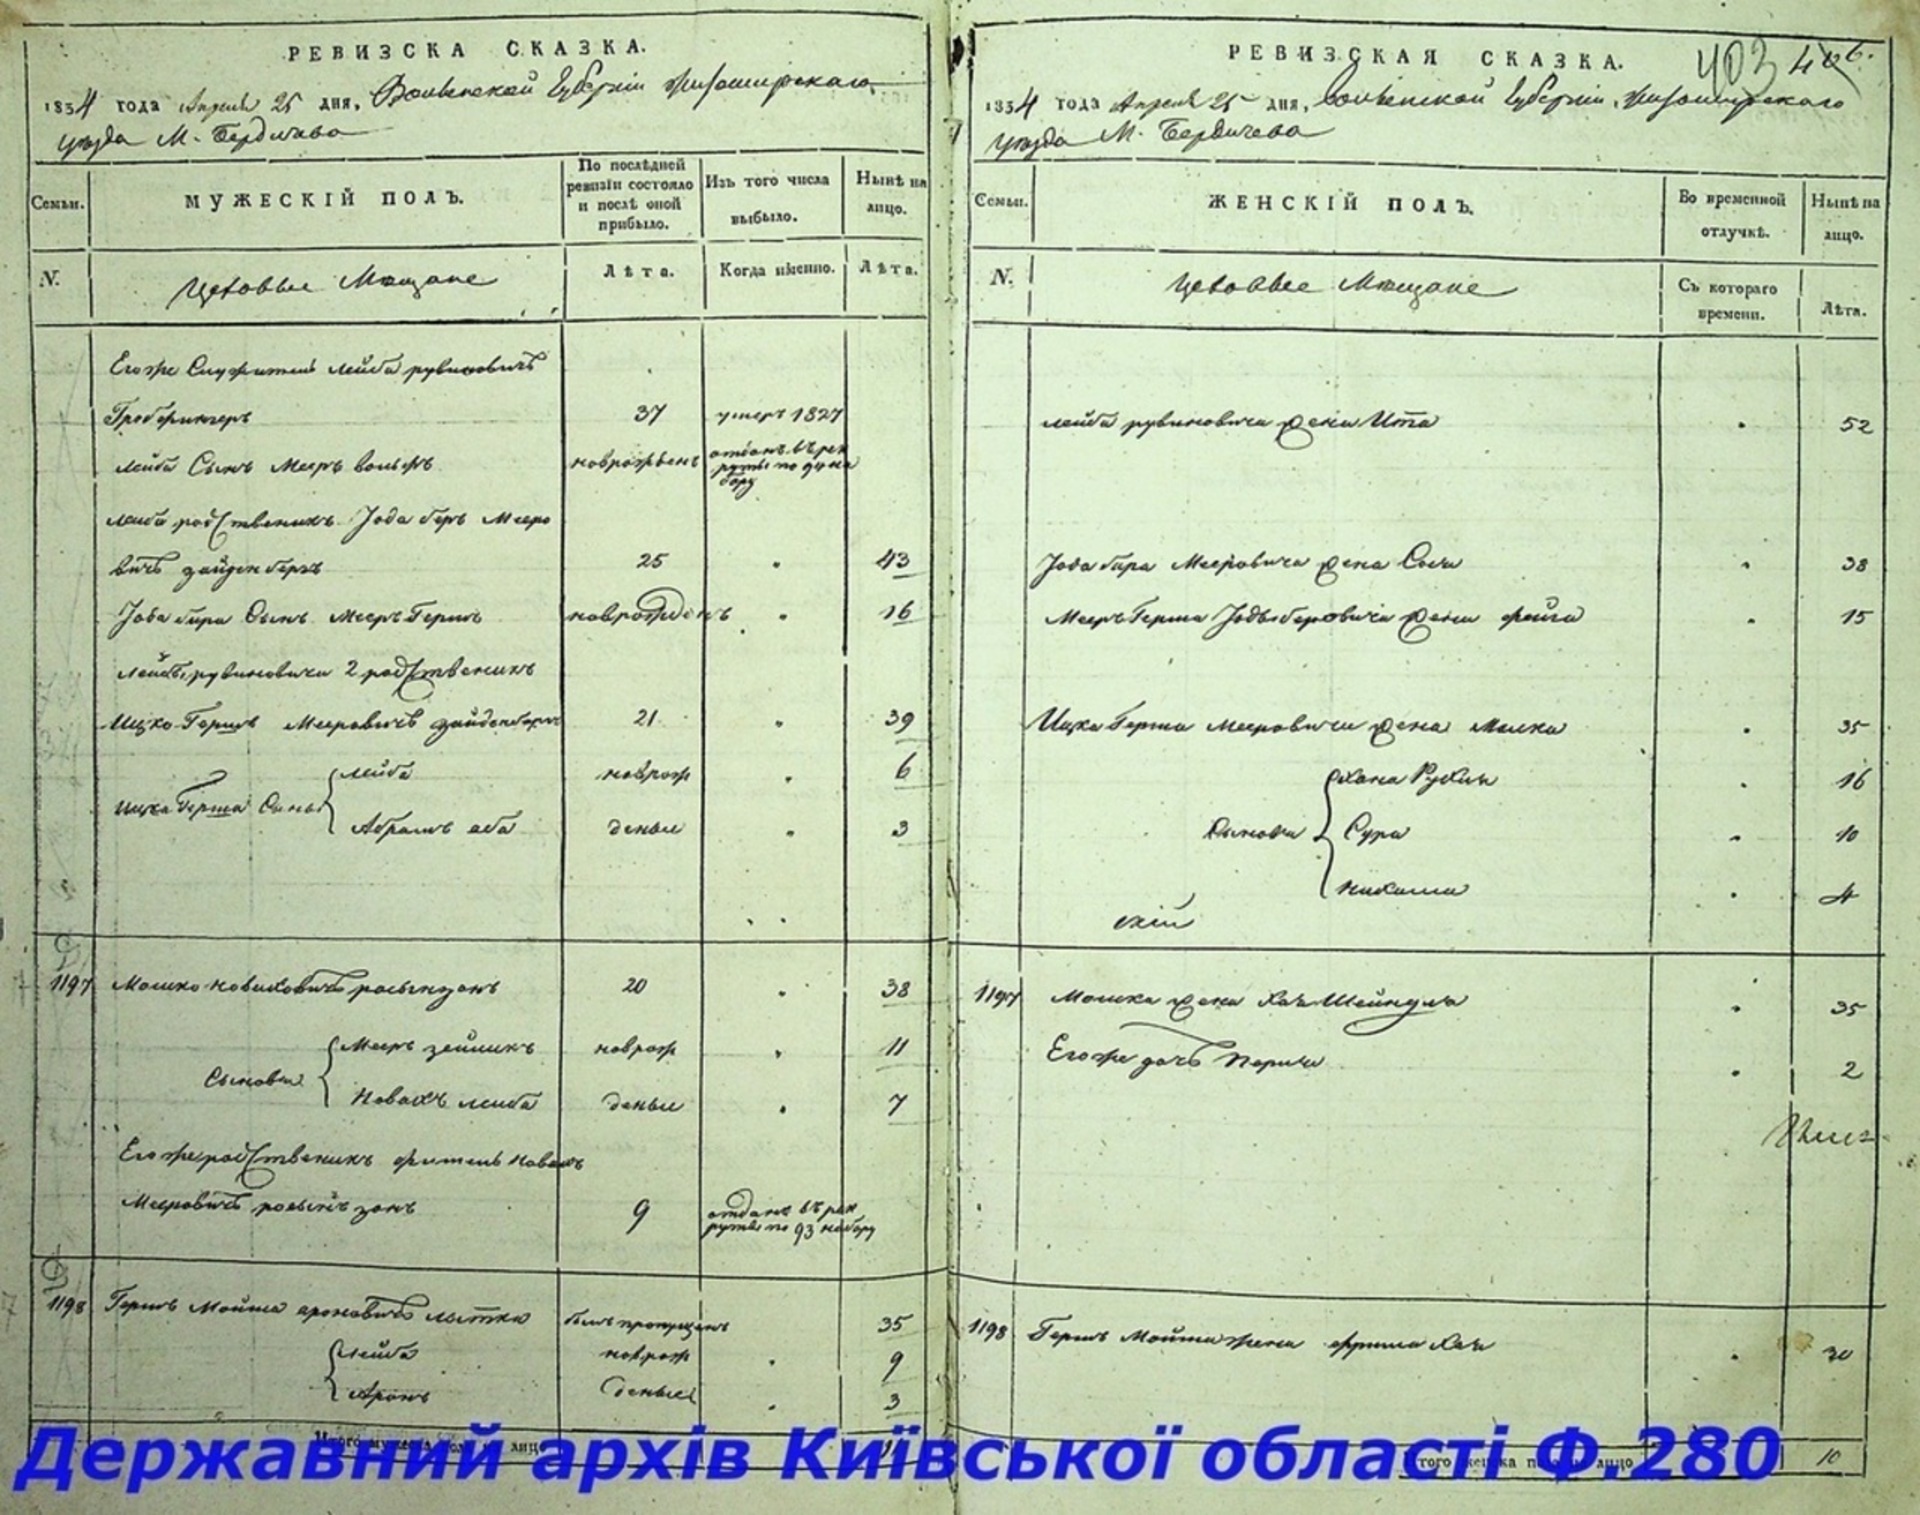 РЕВИЗСКА СКАЗКА.
1834 года Апреля 25 дня, Волынской Губернии Житомирскаго
уезда М. Бердичева
Семьи.
МУЖЕСКІЙ ПОЛЪ.
По послѣдней ревизіи состояло и послѣ оной прибыло.
Изъ того числа выбыло.
Нынѣ на лицо.
N.
Цеховые Мещане
Лѣта.
Когда именно.
Лѣта.
Егоже Служитель Лейба рувиновичъ
37 умеръ 1827
Лейба Сынъ Мееръ вольфъ новрожденъ отданъ въ рек
руты по
бору
Лейба родственикъ Иода беръ Мееро
вичъ зайденбергъ 25 43
Иода бера Сынъ Мееръ Гершъ новрожденъ 16
Лейбы рувиновича 2 родственикъ
Ицко Гершъ Мееровичъ зайденбергъ 21 39
Ицка Герша Сыны Лейба новрож 6
Абрамъ аба деные 3
1197 Мошко новаховичъ 20 38
Сыновья Мееръ зейликъ новрож 11
Новахъ лейба деные 7
Егоже родственикъ фитель Новахъ
Мееровичъ 9 отданъ въ рек
руты по 93 набору
1198 Гершъ Мойша ароновичъ былъ пропущенъ 35
Лейба новрож 9
Аронъ деные 3
Итого мужеска пола на лицо
РЕВИЗСКАЯ СКАЗКА.
403 406.
1834 года Апреля 25 дня, Волынской Губернии, Житомирскаго
уезда М. Бердичева
Семьи.
ЖЕНСКІЙ ПОЛЪ.
Во временной отлучкѣ.
Нынѣ на лицо.
N.
Цеховые Мещане
Съ котораго времени.
Лѣта.
Лейба рувиновича жена Ита 52
Иода бера Мееровича жена Сося 38
Мееръ Герша Иодьберовича жена фейга 15
Ицка Герша Мееровича жена Малка 35
Хана Рухля 16
Сура 10
Нихама 4
1197 Мошка жена Хая Шейндля 35
Егоже дочь Перля 2
1198 Гершъ Мойша жена фрима Хая 30
Итого женска пола на лицо 10
Державний архів Київської області Ф.280